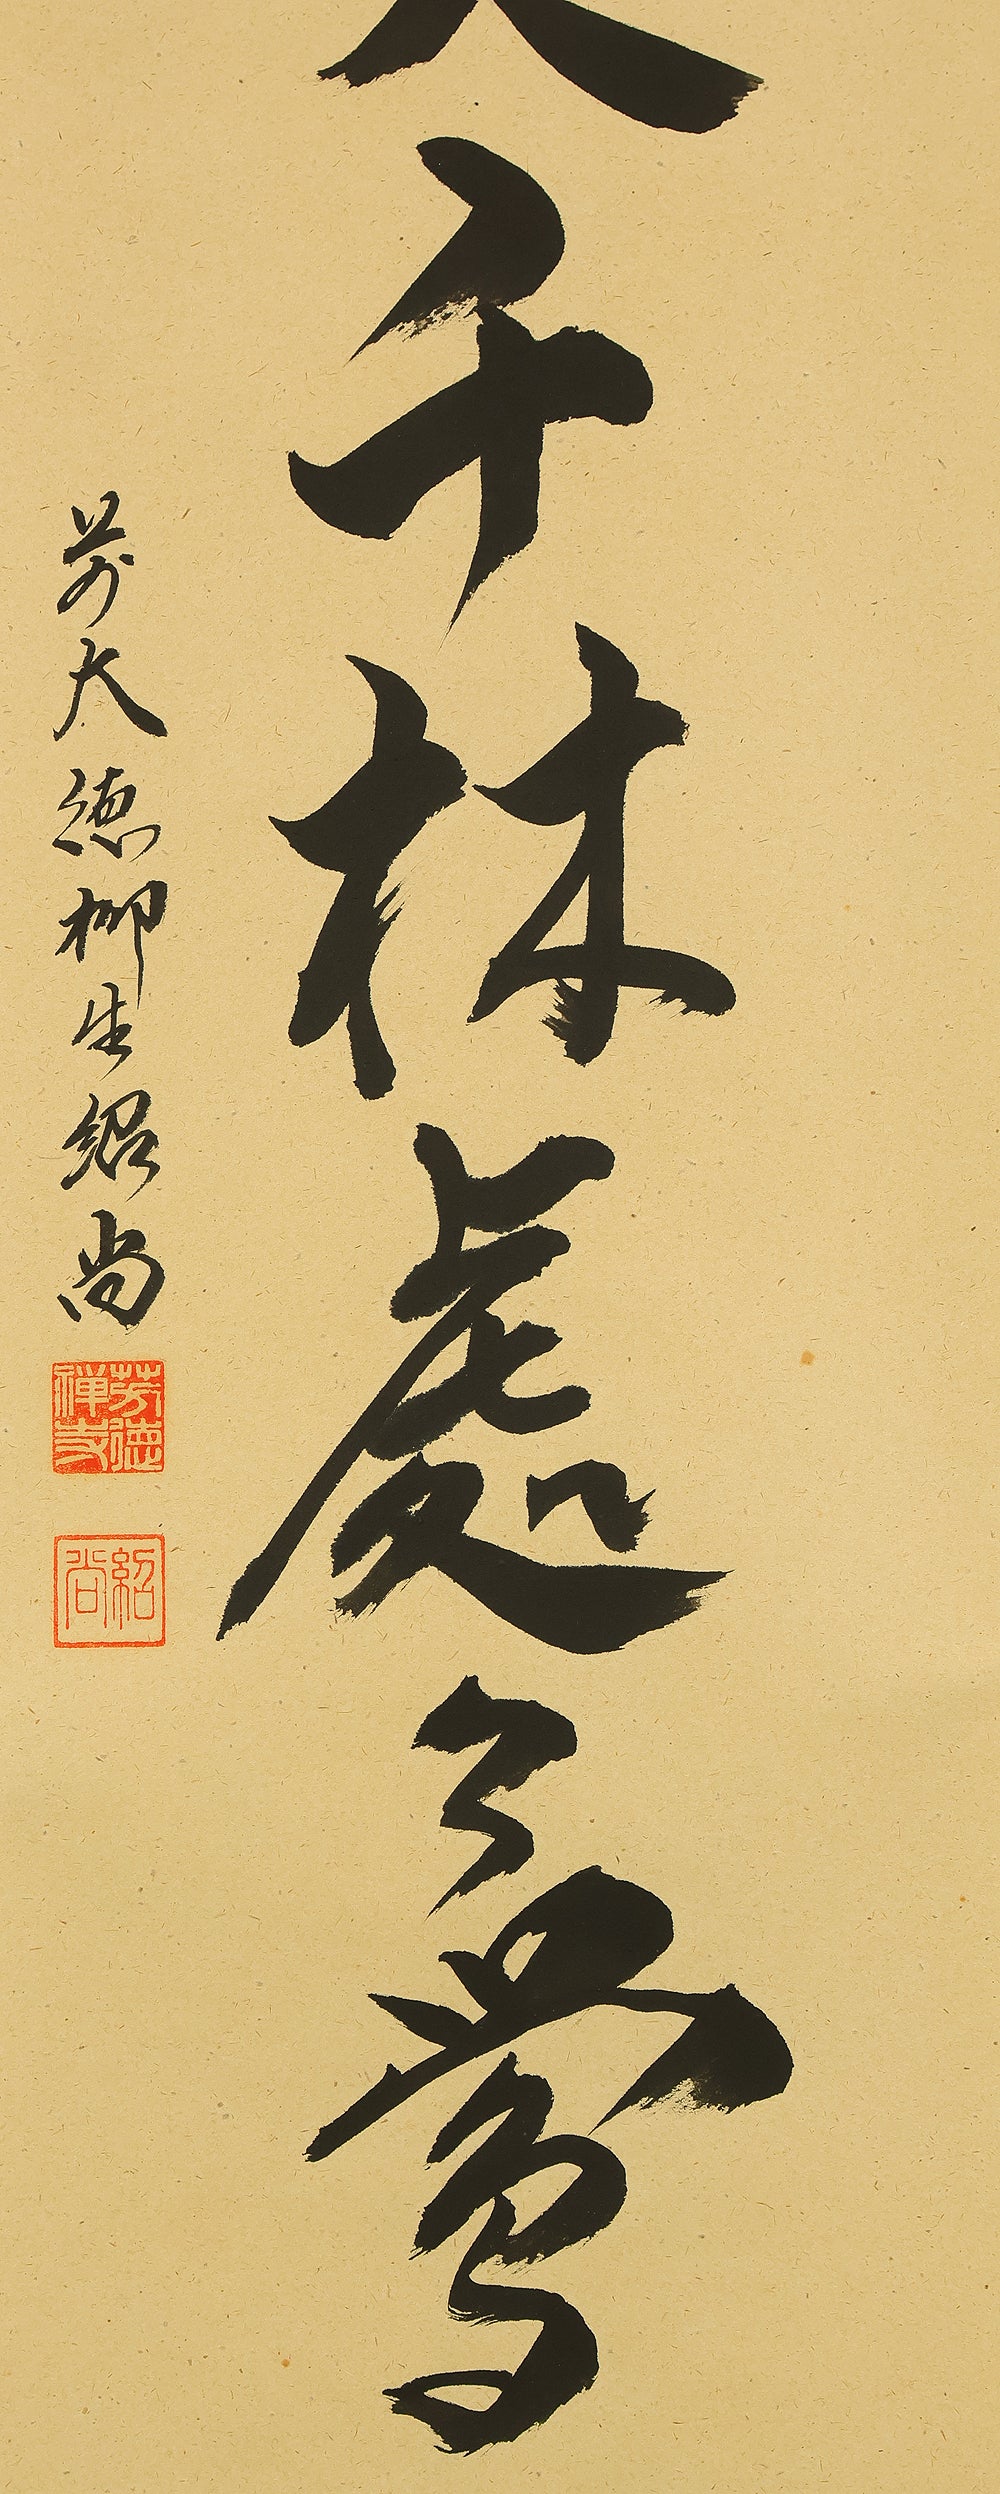 千林處々鶯
前大徳柳生紹尚
芳徳禅寺
紹尚